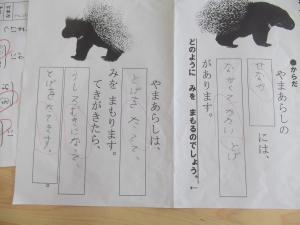 ●からだ
やまあらしの
せなか には、
ながくて かたい とげ
があります。
どのように みを まもるのでしょう。
やまあらしは、
とげを たてて、
みを まもります。
てきがきたら、
うしろむきになって、
とげを たてます。